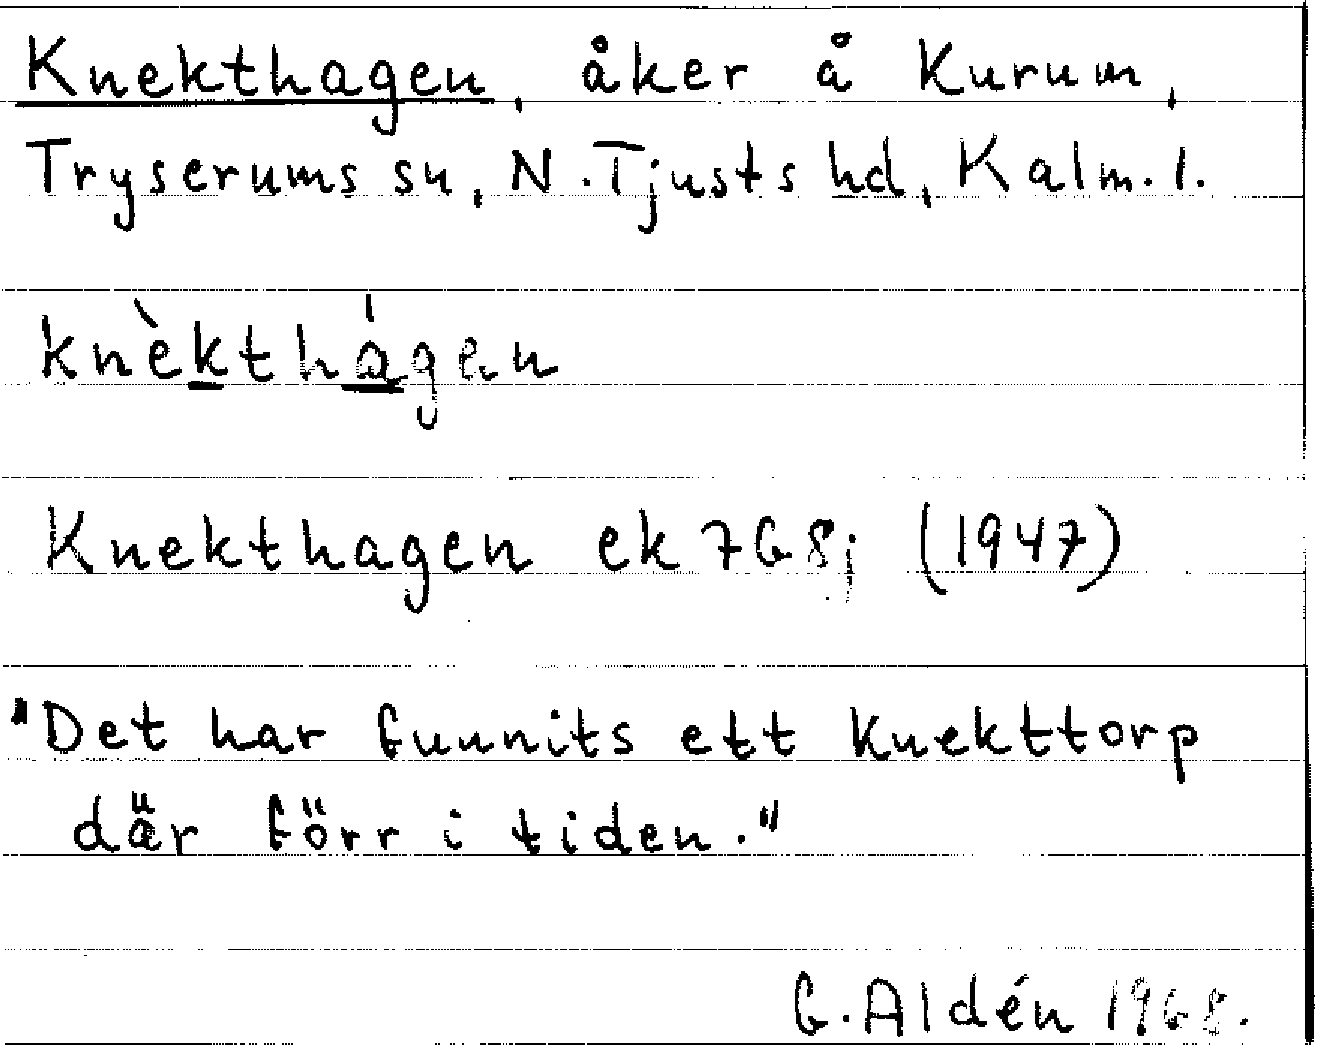 Knekthagen, åker å Kurum,
Tryserums sn, N. Tjusts hd, Kalm. l.
knèkthágen
Knekthagen ek 7G8j (1947)
"Det har funnits ett knekttorp
där förr i tiden."
G. Aldén 1968.